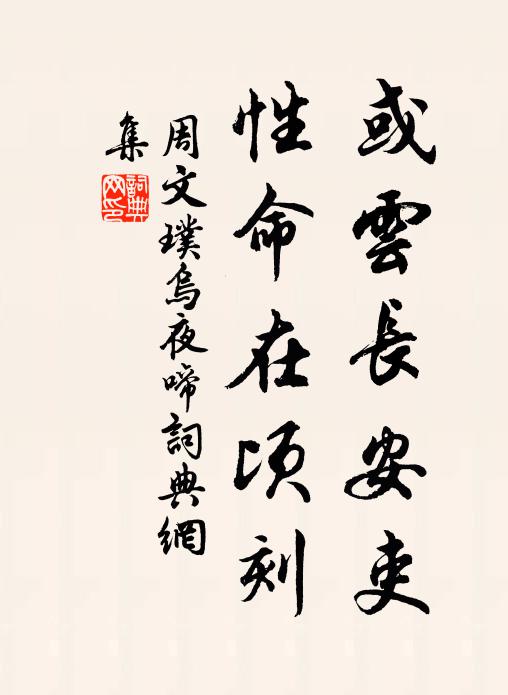 或雲長安吏
性命在頃刻
周文璞烏夜啼詞典網
集
詞典
网印